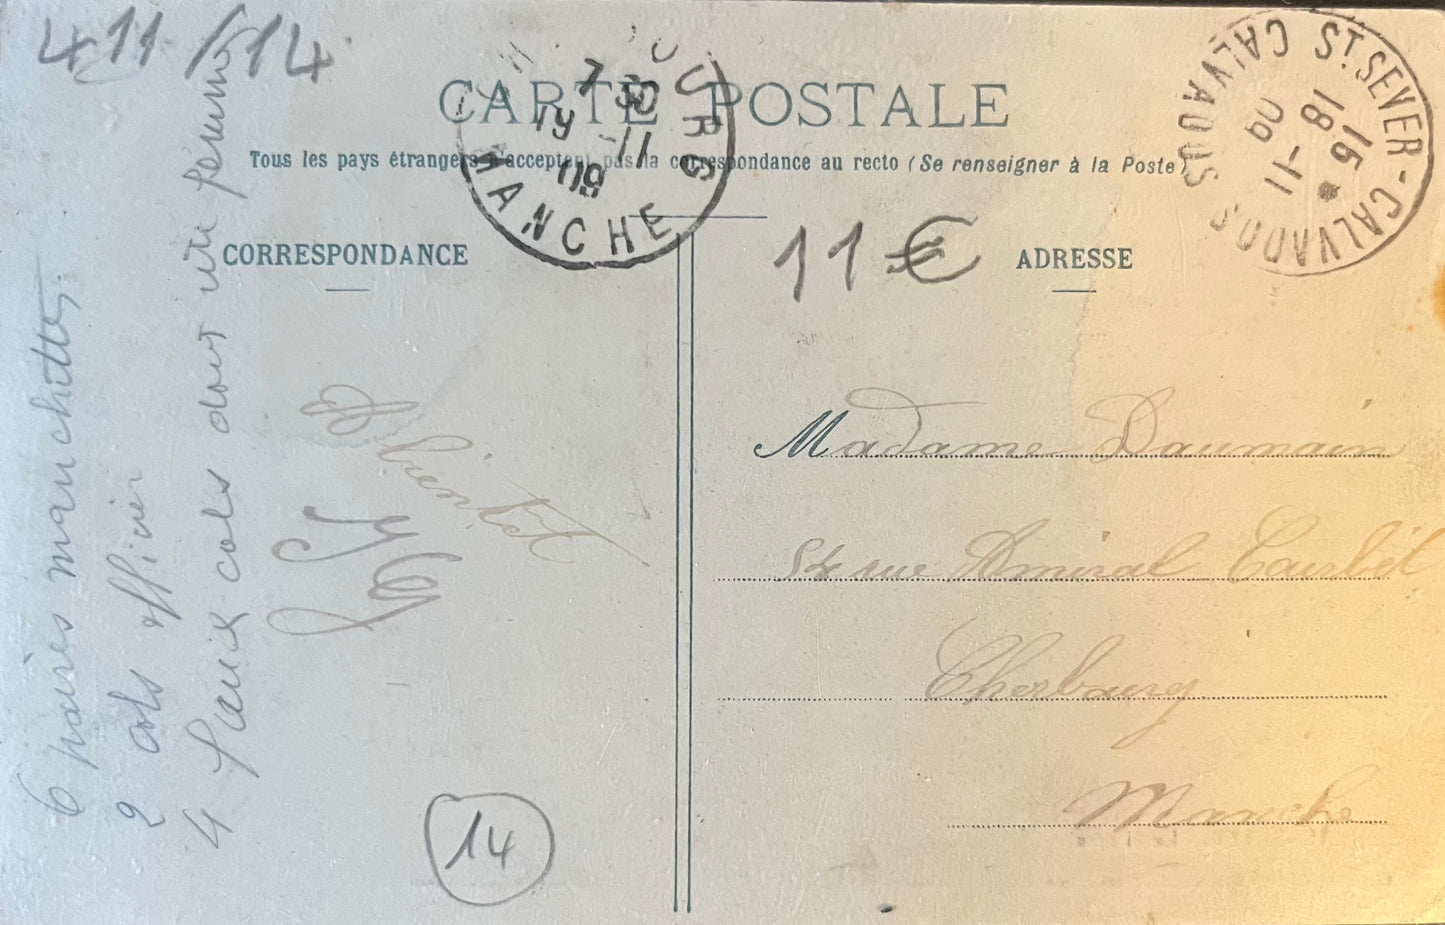 411 /14
CARTE POSTALE
Tous les pays étrangers n'acceptent pas la correspondance au recto (Se renseigner à la Poste)
CORRESPONDANCE
ADRESSE
11 €
7 30
19 -11
09
MANCHE
ST. SEVER - CALVADOS
CALVADOS
15
18 -11
09
6 paires manchettes
2 cols officier
4 faux cols dont un
A bientot
Madame Daumain
54 rue Amiral Courbét
Cherbourg
Manche
14